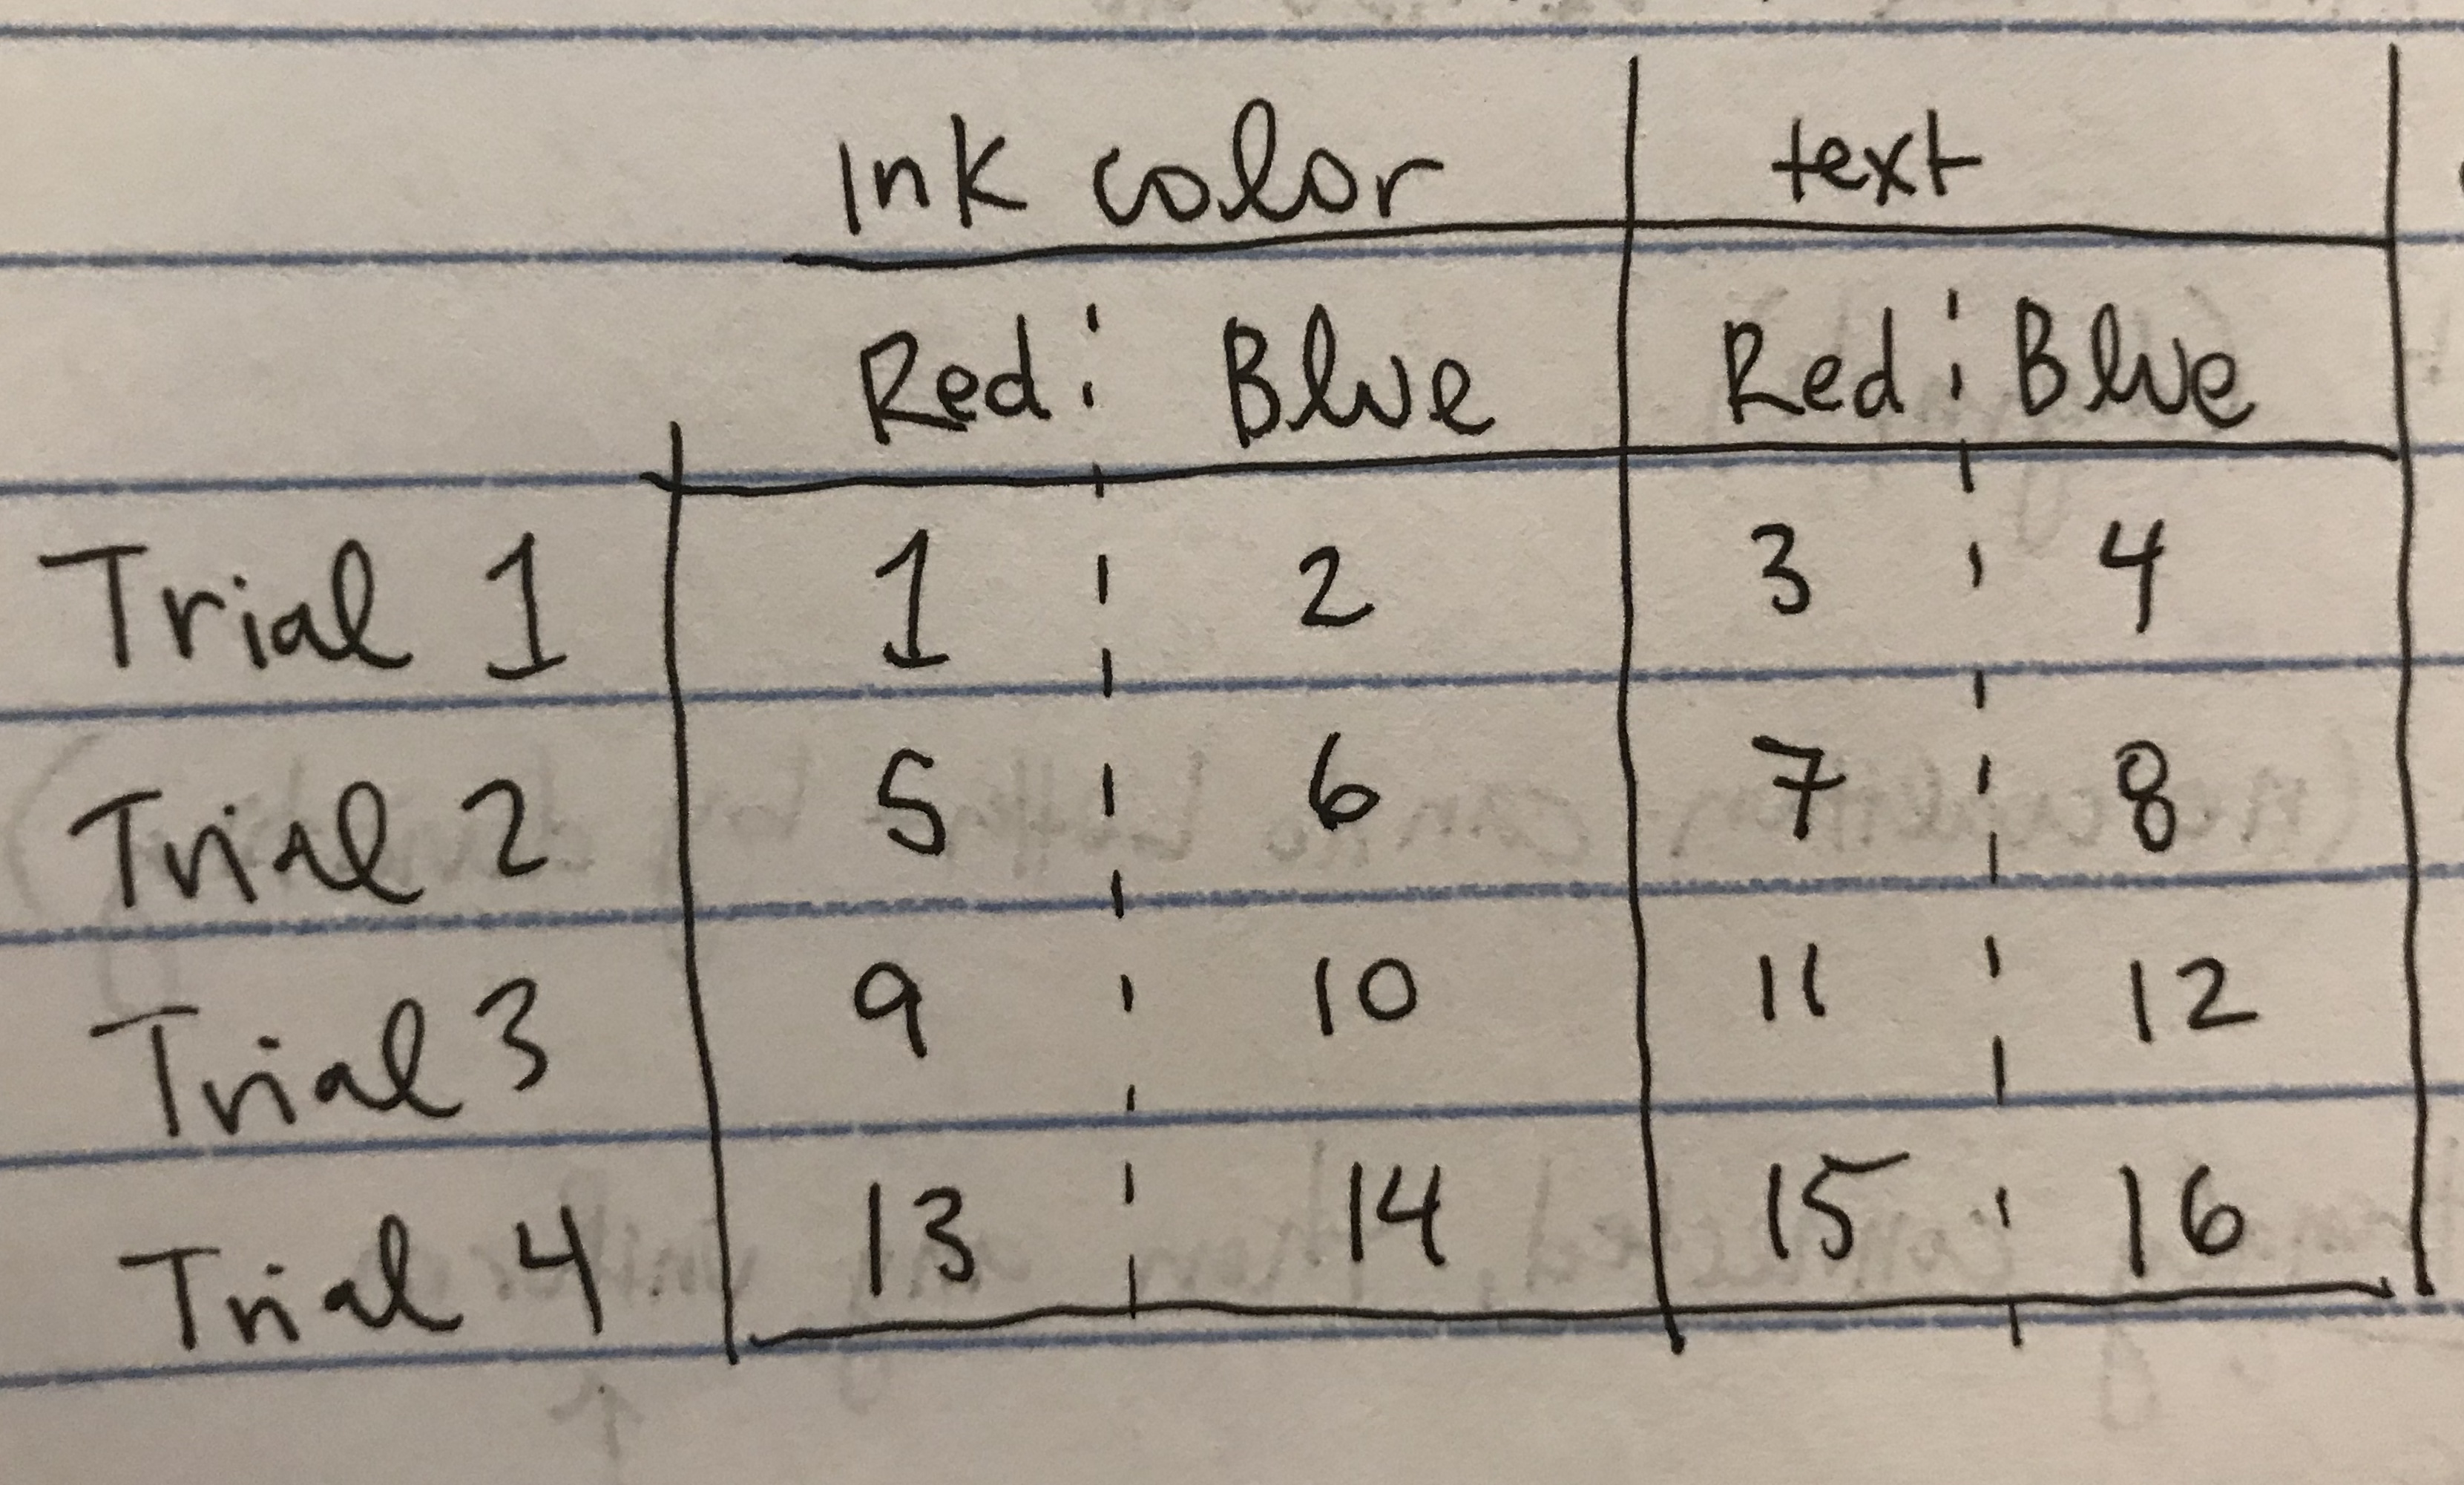 Ink color text
Red Blue Red Blue
Trial 1 1 2 3 4
Trial 2 5 6 7 8
Trial 3 9 10 11 12
Trial 4 13 14 15 16